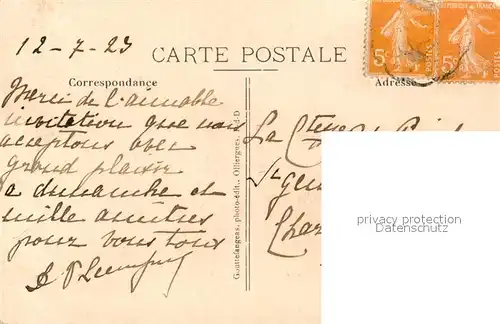 12-7-23
CARTE POSTALE
Correspondance
Adresse
RÉPUBLIQUE FRANÇAISE
5c
5c
POSTES
Merci de l'aimable
invitation que nous
acceptons avec
grand plaisir
a dimanche et
mille amitiés
pour vous tous
La Ctesse
St
Gouttefangeas, photo-édit., Olliergues, P.-d-D
privacy protection
Datenschutz